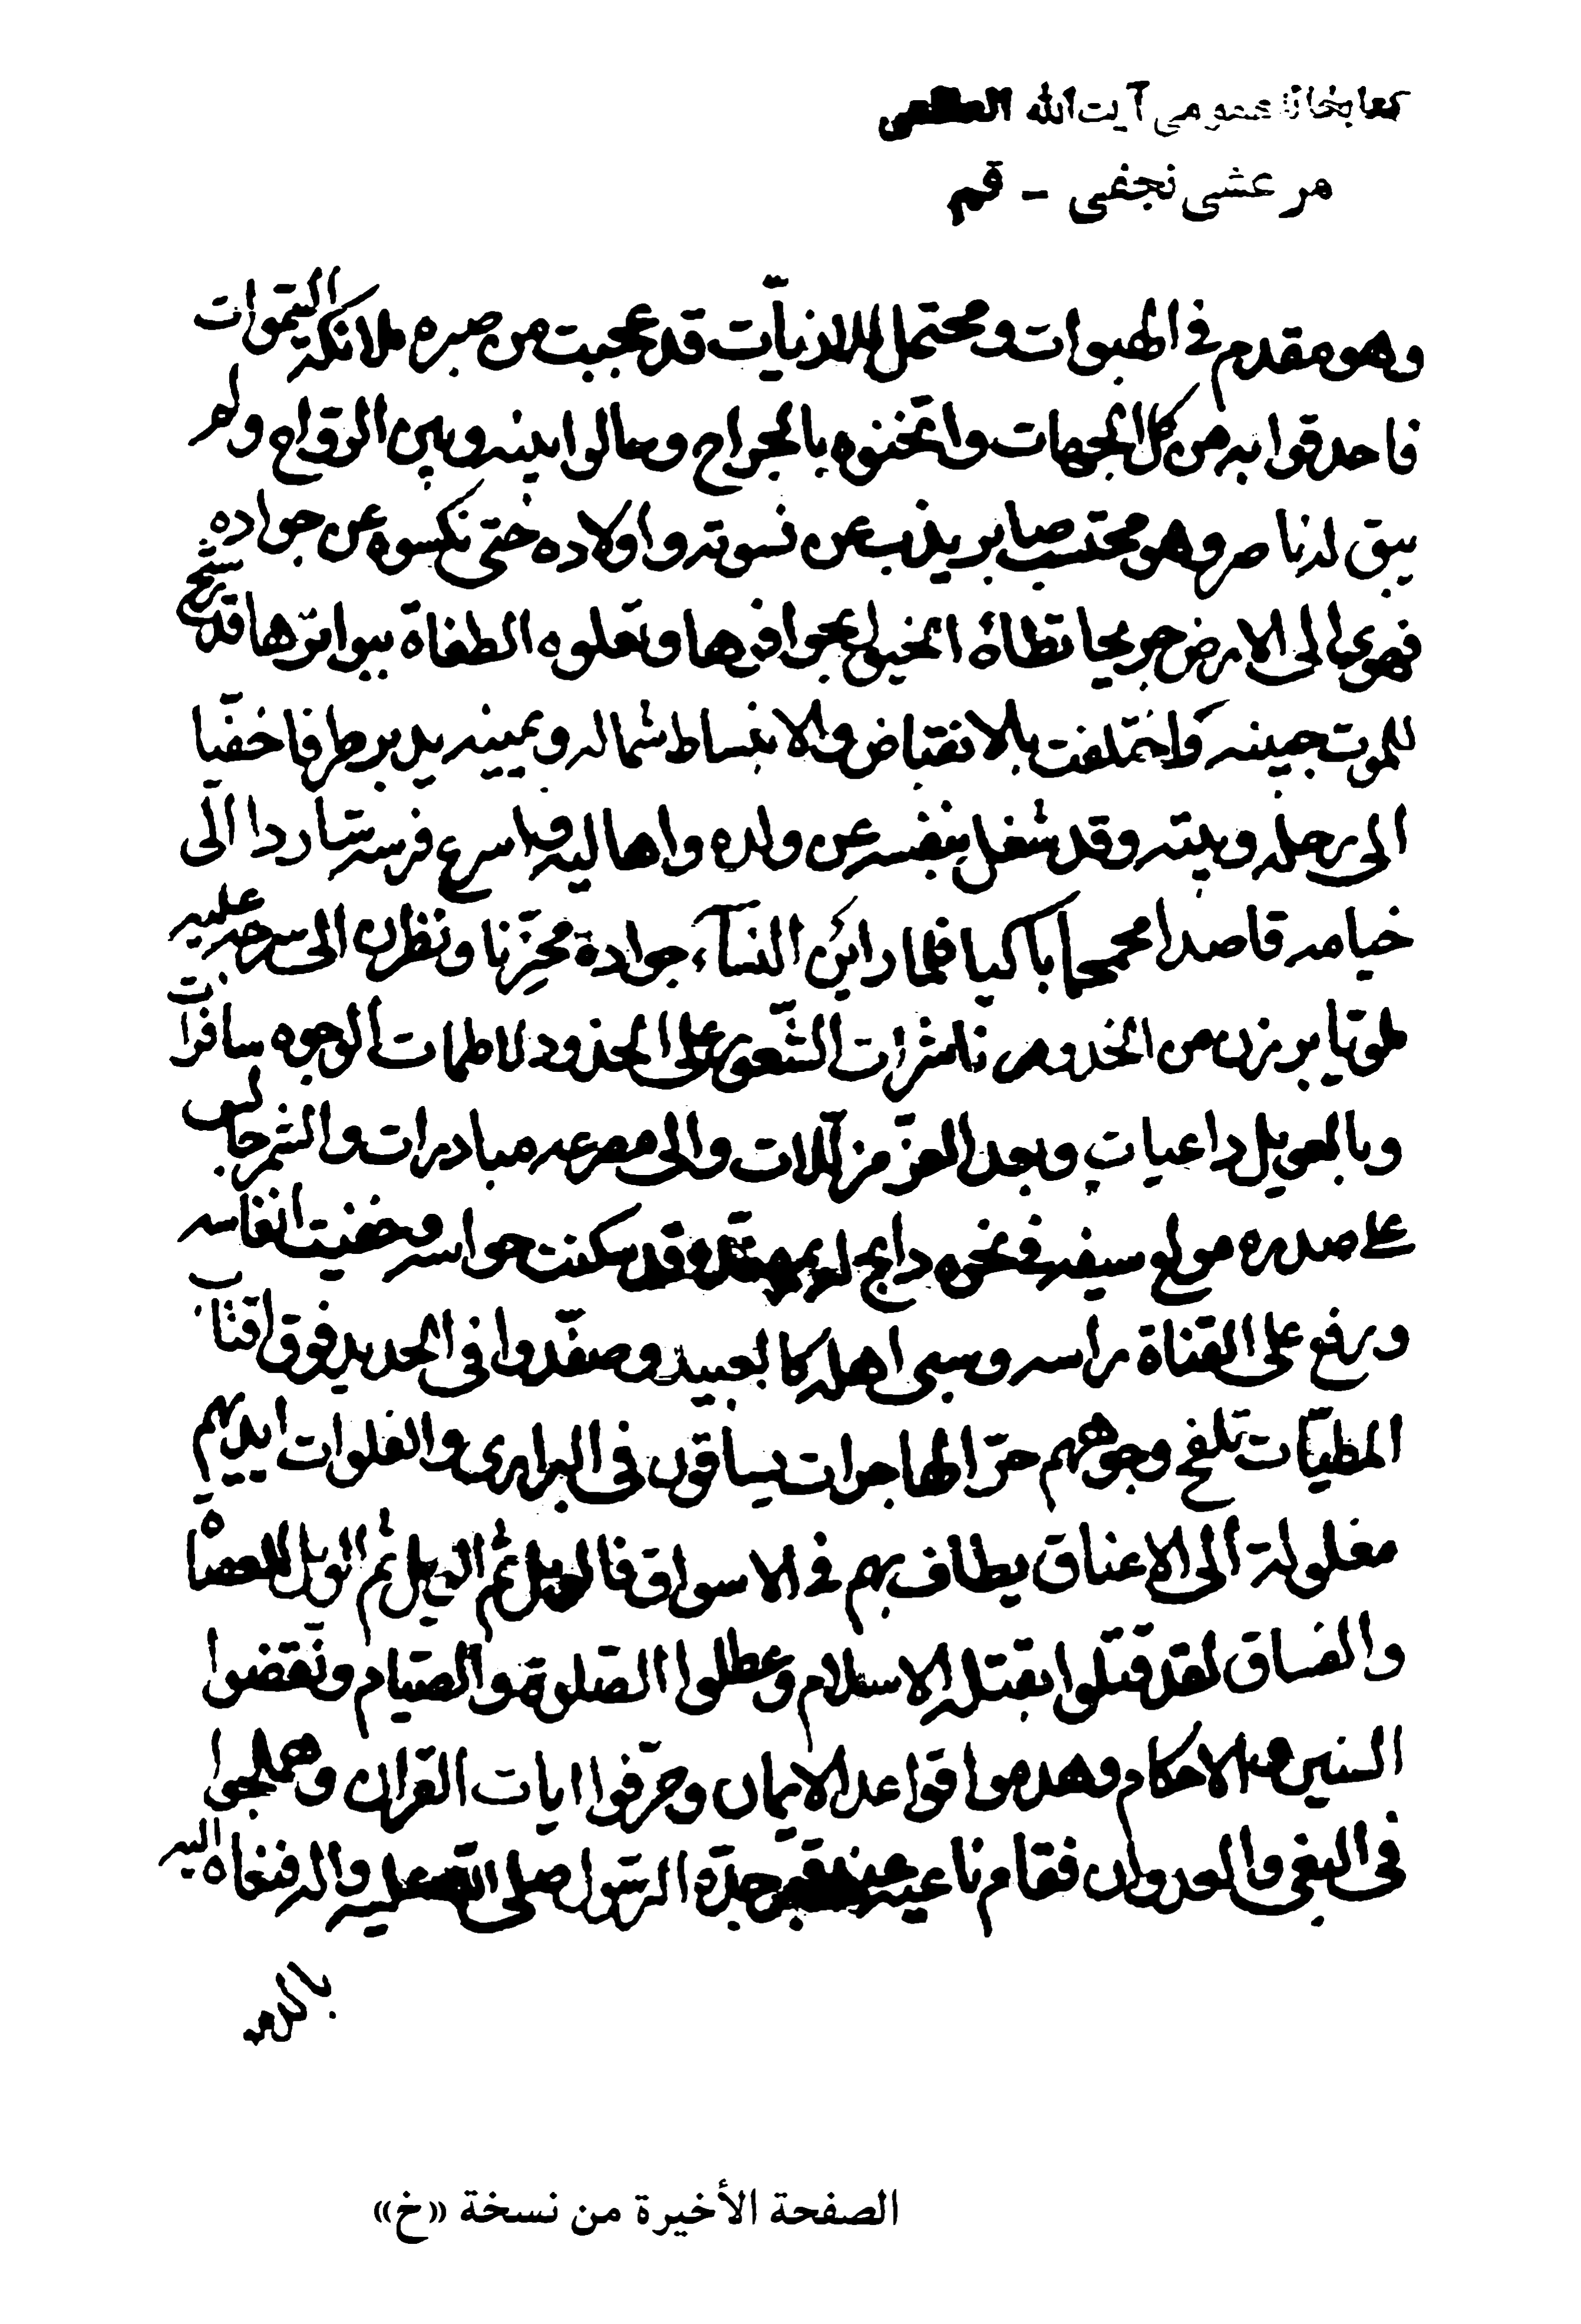 کتابخانه عمومی آیت الله العظمی
مرعشی نجفی - قم
وهو مقدم في الهبوات ومحتمل للاذيات قد عجبت من صبره ملائكة السموات
فاحدقوا به من كل الجهات واثخنوه بالجراح وحالوا بينه وبين الرواح ولم
يبق له ناصر وهو محتسب صابر يذب عن نسوته واولاده حتى نكسوه عن جواده
فهوى الى الارض جريحا تطاه الخيل بحوافرها وتعلوه الطغاة ببواترها قد رشح
للموت جبينه واختلفت بالانقباض والانبساط شماله ويمينه يدير طرفا خفيا
الى رحله وبيته وقد شغل بنفسه عن ولده واهاليه واسرع فرسه شاردا الى
خيامه قاصدا محمحما باكيا فلما راين النساء جواده مخزيا ونظرن الى سرجه عليه
ملويا برزن من الخدور ناشرات الشعور على الخدود لاطمات الوجوه سافرات
وبالعويل داعيات وبعد العز مذللات والى مصرعه مبادرات والشمر جالس
على صدره مولع سيفه في نحره ذابح له بمهنده وقد سكنت حواسه وخفيت انفاسه
ورفع على القناة راسه وسبى اهله كالعبيد وصفدوا في الحديد فوق اقتاب
المطيات تلفح وجوههم حر الهاجرات يساقون في البراري والفلوات ايديهم
مغلولة الى الاعناق يطاف بهم في الاسواق فالويل ثم الويل ثم الويل للعصاة
والفساق لقد قتلوا بقتله الاسلام وعطلوا الصلوة والصيام ونقضوا
السنن والاحكام وهدموا قواعد الايمان وحرفوا ايات القران وهملجوا
في البغي والعدوان فقام ناعيه عند قبر جده الرسول صلى الله عليه واله فنعاه اليه
الصفحة الأخيرة من نسخة «خ»